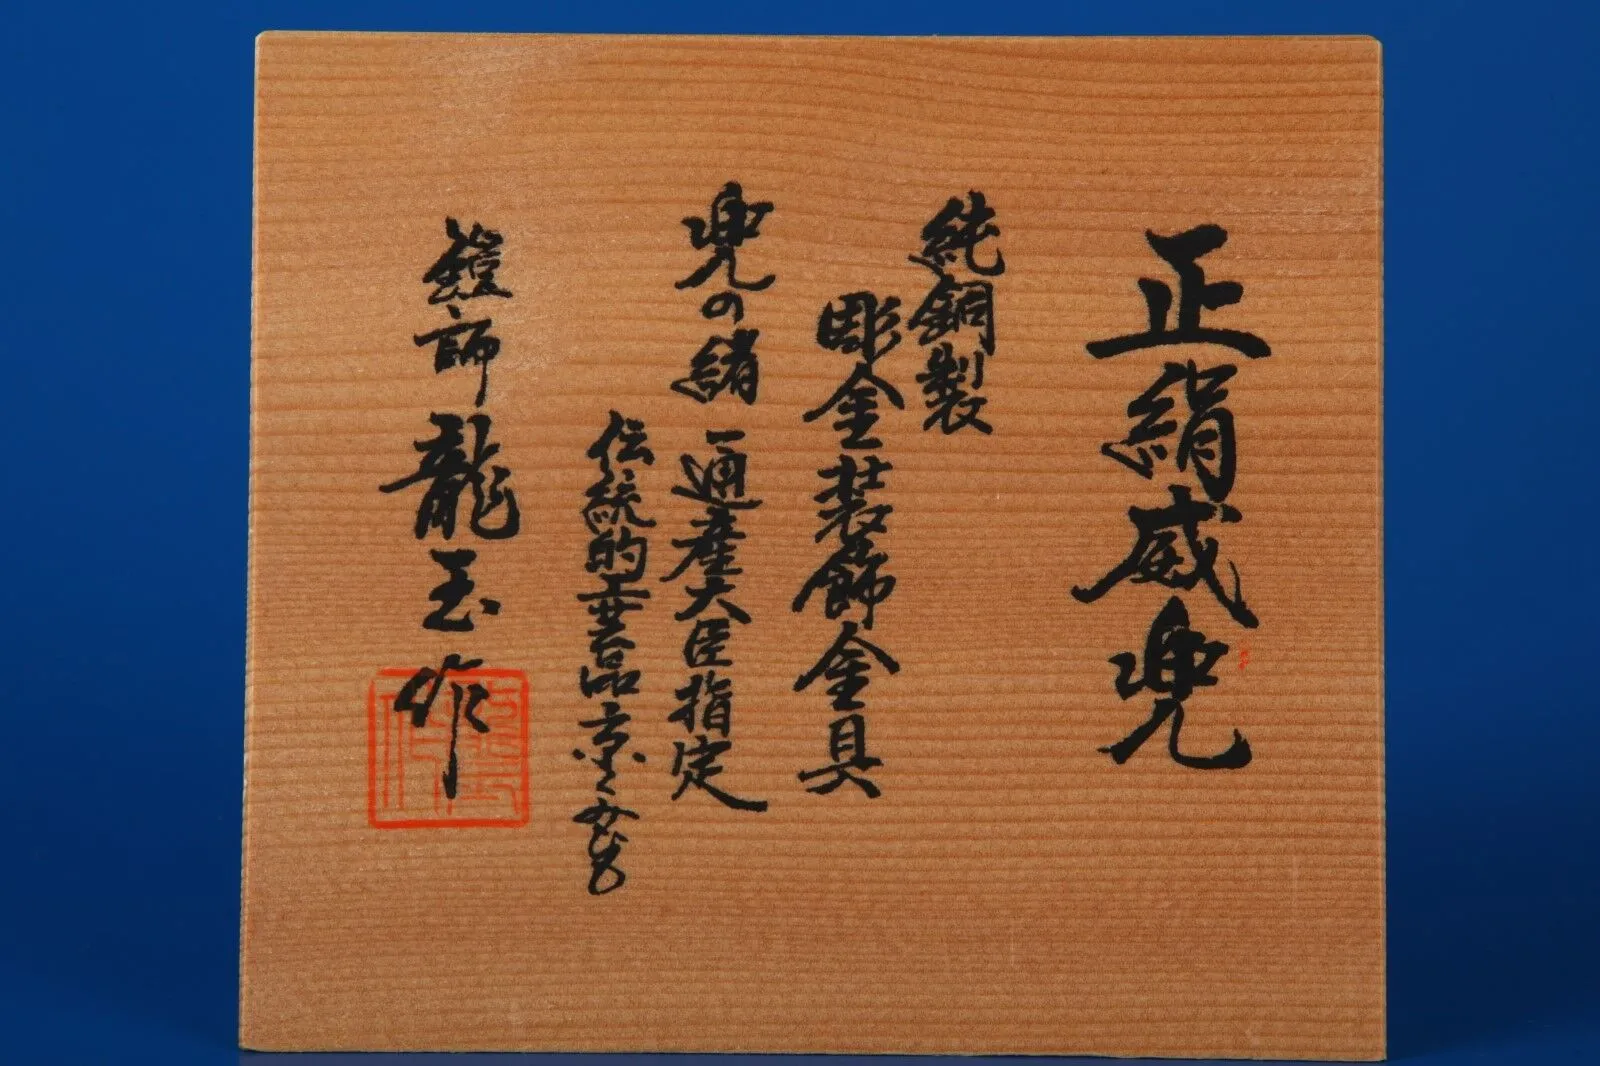 正絹威兜
純銅製
彫金装飾金具
兜の緒 通産大臣指定
伝統的工芸品京くみひも
鎧師 龍玉作